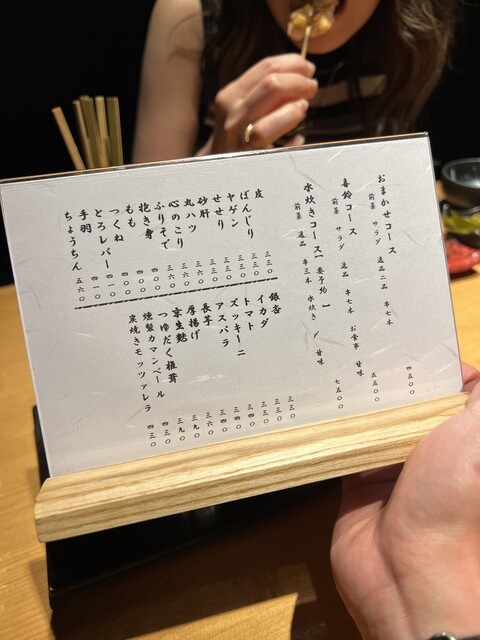 おまかせコース
前菜 サラダ 逸品二品 串七本 四五〇〇
喜鈴コース
前菜 サラダ 逸品 串七本 お食事 甘味 五五〇〇
水炊きコース【要予約】
前菜 逸品 串三本 水炊き 〆 甘味 七五〇〇
皮 三三〇
ぼんじり 三三〇
ヤゲン 三三〇
せせり 三三〇
砂肝 三三〇
丸ハツ 三六〇
心のこり 三六〇
ふりそで 三六〇
抱き身
もも
つくね
とろレバー
手羽
ちょうちん 五六〇
銀杏 三三〇
イカダ 三三〇
トマト 三三〇
ズッキーニ 三四〇
アスパラ 三四〇
長芋
厚揚げ
京生麩 三九〇
つゆだく椎茸 三九〇
燻製カマンベール 四三〇
炭焼きモッツァレラ 四三〇